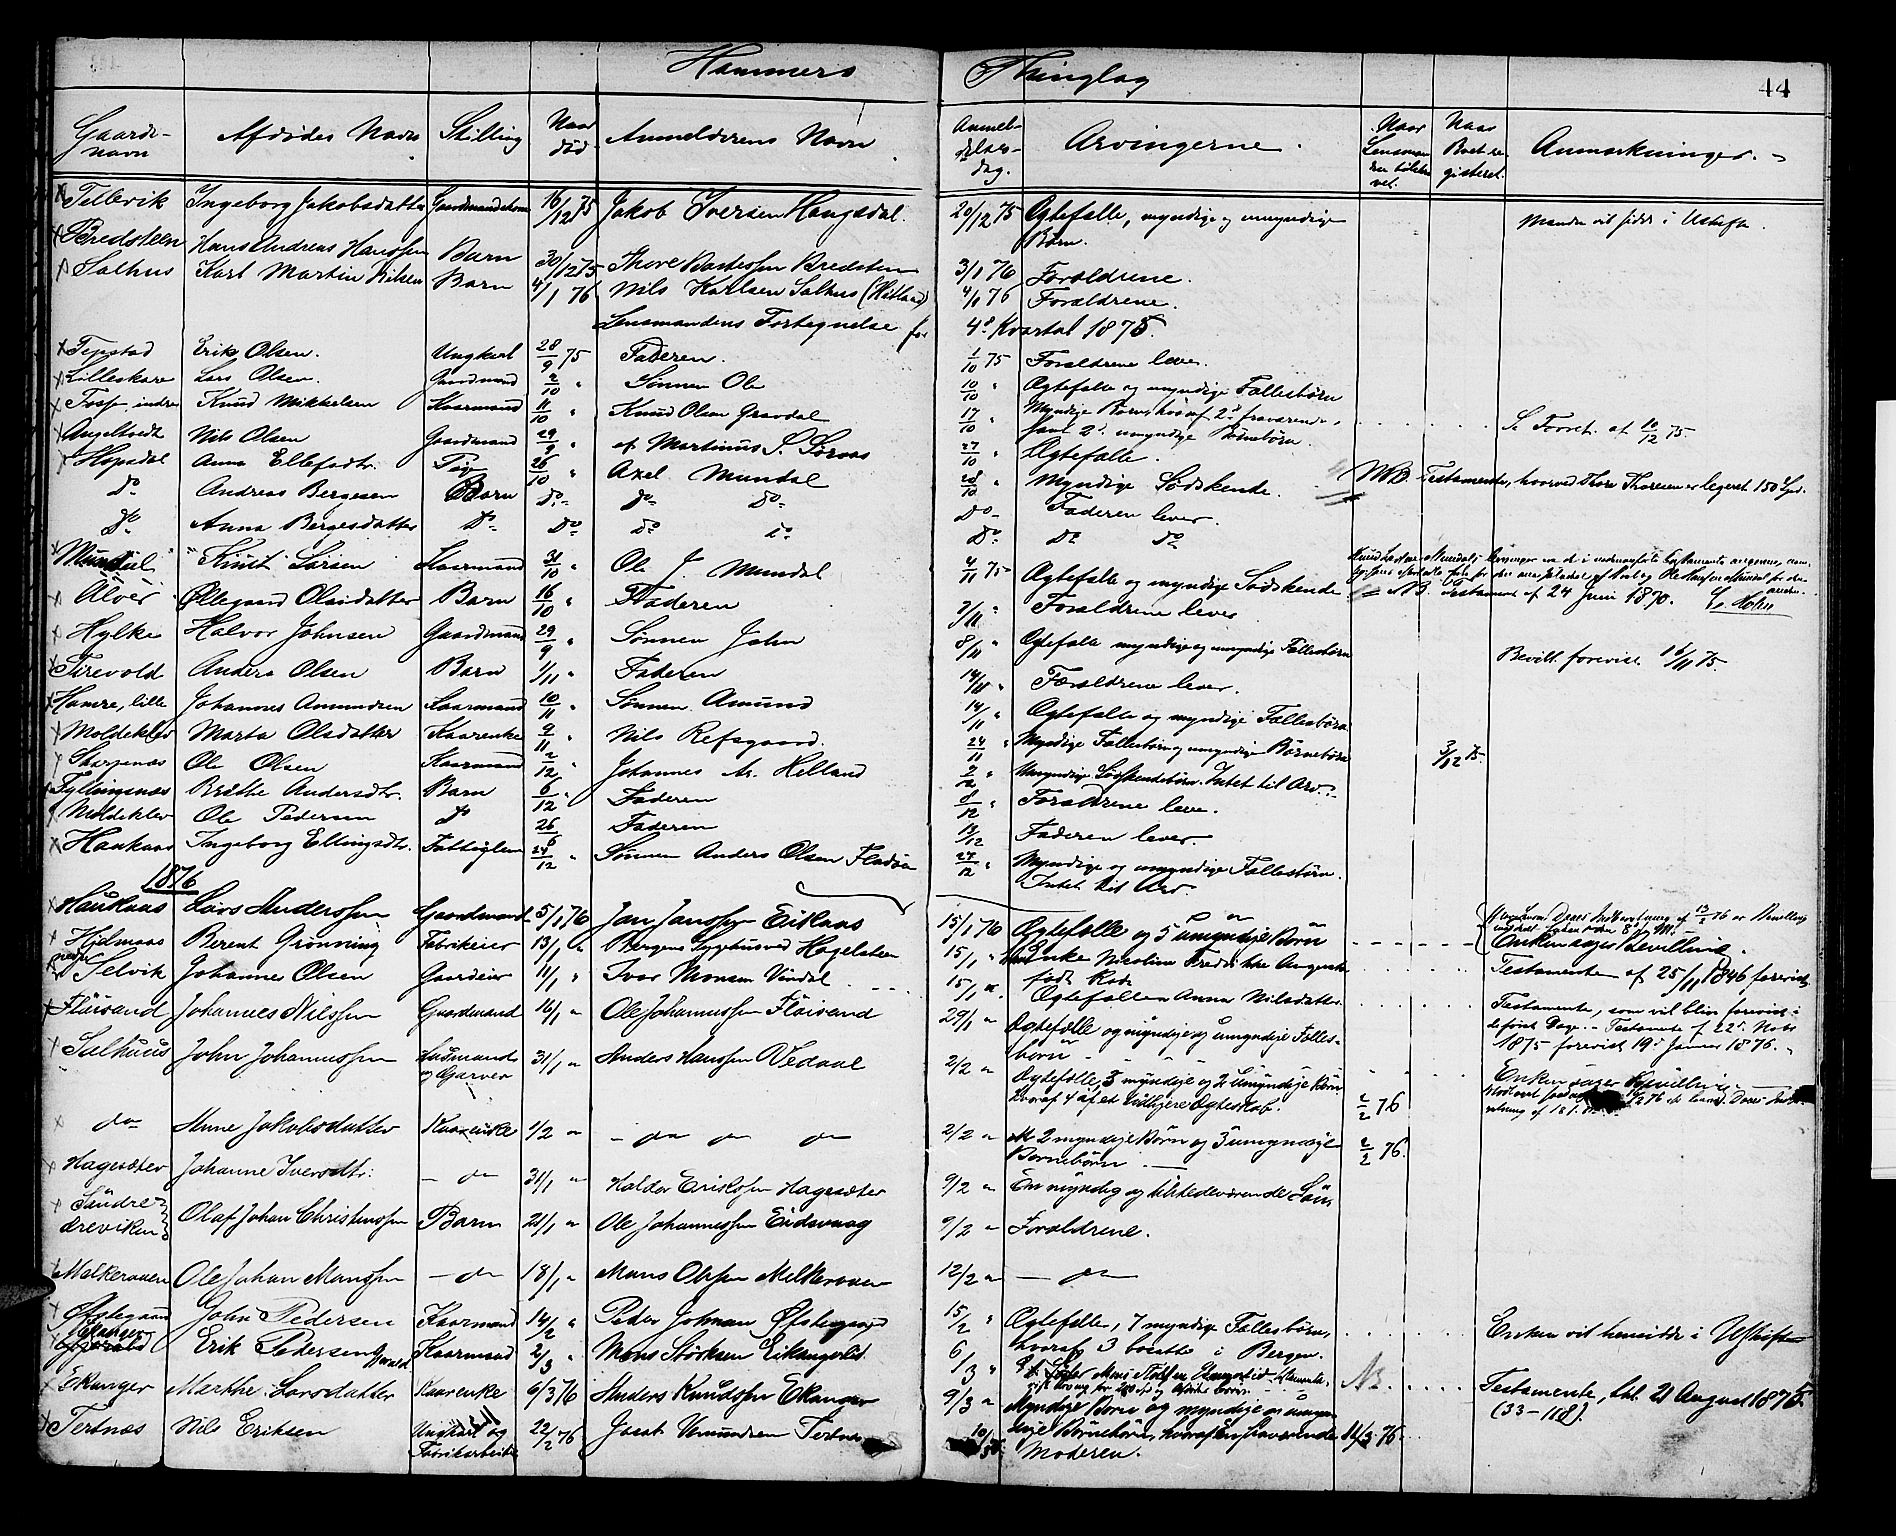 Hammers Thinglag 44
Gaards-navn Afdødes Navn Stilling Naar død Anmelderens Navn Anmel-delses-dag. Arvingerne. Naar Lensman Naar Boet re-gisteret. Anmærkninger.
Tellevik Ingeborg Jakobsdatter Gaardmandskone 16/12 75 Jakob Iversen Haugsdal. 20/12 75 Ægtefælle, myndige og umyndige
Børn.
Manden vil sidde i Uskifte
Bredsteen Hans Andreas Hanssen Barn 30/12 75 Thore Bertessen Bredsten 3/1 76 Forældrene.
Salhus Karl Martin Nilsen Barn 4/1 76 Nils Karlsen Salhus 4/1 76 Forældrene.
Lensmandens Fortegnelse for 4de Kvartal 1875.
Tepstad Erik Olsen. Ungkarl 28/9 75 Faderen. 1/10 75 Forældrene lever.
Lilleskare Lars Olsen. Gaardmand 2/10 " Sønnen Ole 10/10 " Ægtefælle og myndige Fællesbørn
Tosse indre Knud Mikkelsen Kaarmand 11/10 " Knud Olsen Gravdal 17/10 " Myndige Børn, hvoraf 2de fraværende,
samt 2de umyndige Børnebørn.
Angeltvedt Nils Olsen Gaardmand 29/9 " Martinus S. Sørаas 27/10 " Ægtefælle. S. Forret. af 10/12 75.
Hopsdal Anna Ellefsdtr. Pige 26/10 " Axel Mundal 28/10 " Myndige Sødskende. NB. Testamente, hvorved Thore Thoresen er legeret 150 Spd.
do Andreas Bergesen Barn do do do do Faderen lever.
do Anna Bergesdatter do do do do do do do
Mundal Knut Larsen Kaarmand 31/10 " Ole J. Mundal 4/11 75 Ægtefælle og myndige Sødskende
NB. Testament af 24 Juni 1870.
Alver Øllegaard Olaisdatter Barn 16/10 " Faderen 7/11 " Forældrene lever
Hylke Halvor Johnsen Gaardmand 29/9 " Sønnen John 8/11 " Ægtefælle myndige og umyndige Fællesbørn Bevill. forevist 16/11 75.
Tirevold Anders Olsen Barn 1/11 " Faderen 14/11 " Forældrene lever.
Hamre, lille Johannes Amundsen Kaarmand 10/11 " Sønnen Amund 14/11 " Ægtefælle og myndige Fællesbørn
Moldeklev Marta Olsdatter Kaarenke 2/11 " Nils Refsgaard. 24/11 " Myndige Fællesbørn og umyndige Børnebørn 3/12 75.
Skarpenæs Ole Olsen Kaarmand 2/12 " Johannes Ar. Helland 7/12 " Umyndige Sødskendebørn. Intet til Arv.
Fyllingsnæs Brithe Andersdtr. Barn 6/12 " Faderen 8/12 " Forældrene lever.
Moldeklev Ole Pedersen do 26/6 Faderen 13/12 Faderen lever.
Haukaas Ingeborg Ellingsdtr. Fattiglem 24/12 " Sønnen Anders Olsen Fladøen 27/12 " Myndige og umyndige Fællesbørn.
Intet til Arv.
1876
Haukaas Lars Anderssen Gaardmand 5/1 76 Jan Janssen Eikaas 15/1 76 Ægtefælle og 5 umyndige Børn
Enken søger Bevilling.
Hjelmaas Berent Grønning Fabrikeier 13/1 " Bergens Sygehus ved Hagelsteen 15/1 " Enke Nicoline Fredrikke Augusta
født Rode
Testamente af 25/11 1846 forevist
Selvik Johannes Olsen Gaardeier 11/1 " Ivar Monsen Vindal 15/1 " Ægtefællen Anna Nilsdatter
Testamente, som vil blive forevist i
de første Dage. - Testamente af 22de Novbr
1875 forevist 19de Januar 1876.
Fløisand Johannes Nilssen Gaardmand 16/1 " Ole Johannessen Fløisand 29/1 " Ægtefælle og myndige og umyndige Fælles-
børn
Salhuus John Johannessen Huusmand og Garver 31/1 " Anders Hanssen Vedaae 2/2 " Ægtefælle, 3 myndige og 2 umyndige Børn
hvoraf 4 af et tidligere Ægteskab. 2/2 76
Enken søger Bevilling
do Anne Jakobsdatter Kaarenke 1/2 " do do do 2/2 " 2 myndige Børn og 3 umyndige
Børnebørn 2/2 76.
Hagesæter Johanne Iversdtr. do 31/1 " Haldor Erikssen Hagesæter 9/2 " En myndig og tilstedeværende Søn
Søndre- dreviken Olaf Johan Christenssen Barn 21/1 " Ole Johannessen Eidsvaag 9/2 " Forældrene.
Melkeraaen Ole Johan Monssen do 18/1 " Mons Olssen Melkeraaen 12/2 " do
Øfstegaard John Pedersen Kaarmand 14/2 " Peder Johnsen Øfstegaard 15/2 " Ægtefælle, 7 myndige Fællesbørn,
hvoraf 3 bosatte i Bergen.
Enken vil hensidde i Uskifte
Erik Pedersen Kaarmand 2/3 " Mons Størksen Eikangvold 6/3 "
Ekanger Marthe Larsdatter Kaarenke 6/3 76 Anders Knudssen Ekanger 9/3 " Myndige Børn og myndige og umyn-
dige Børnebørn, hvoraf En fraværende 11/3 76.
Testamente, dat. 21 August 1875
(33-118).
Tertnæs Nils Eriksen Ungkarl og Fabrikarbeider 22/2 76 Joest Amundsen Tertnæs Moderen.